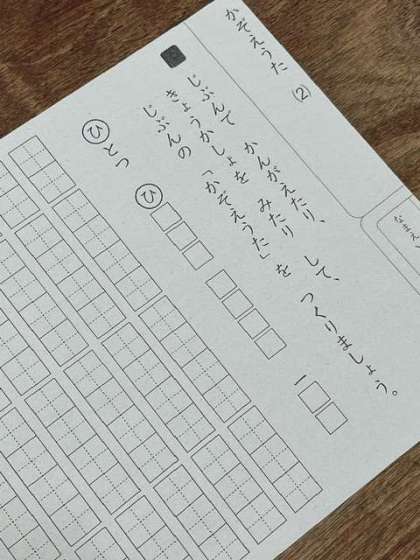 なまえ
かぞえうた (2)
じぶんで かんがえたり、
きょうかしょを みたり して、
じぶんの 「かぞえうた」を つくりましょう。
ひ 一
ひとつ